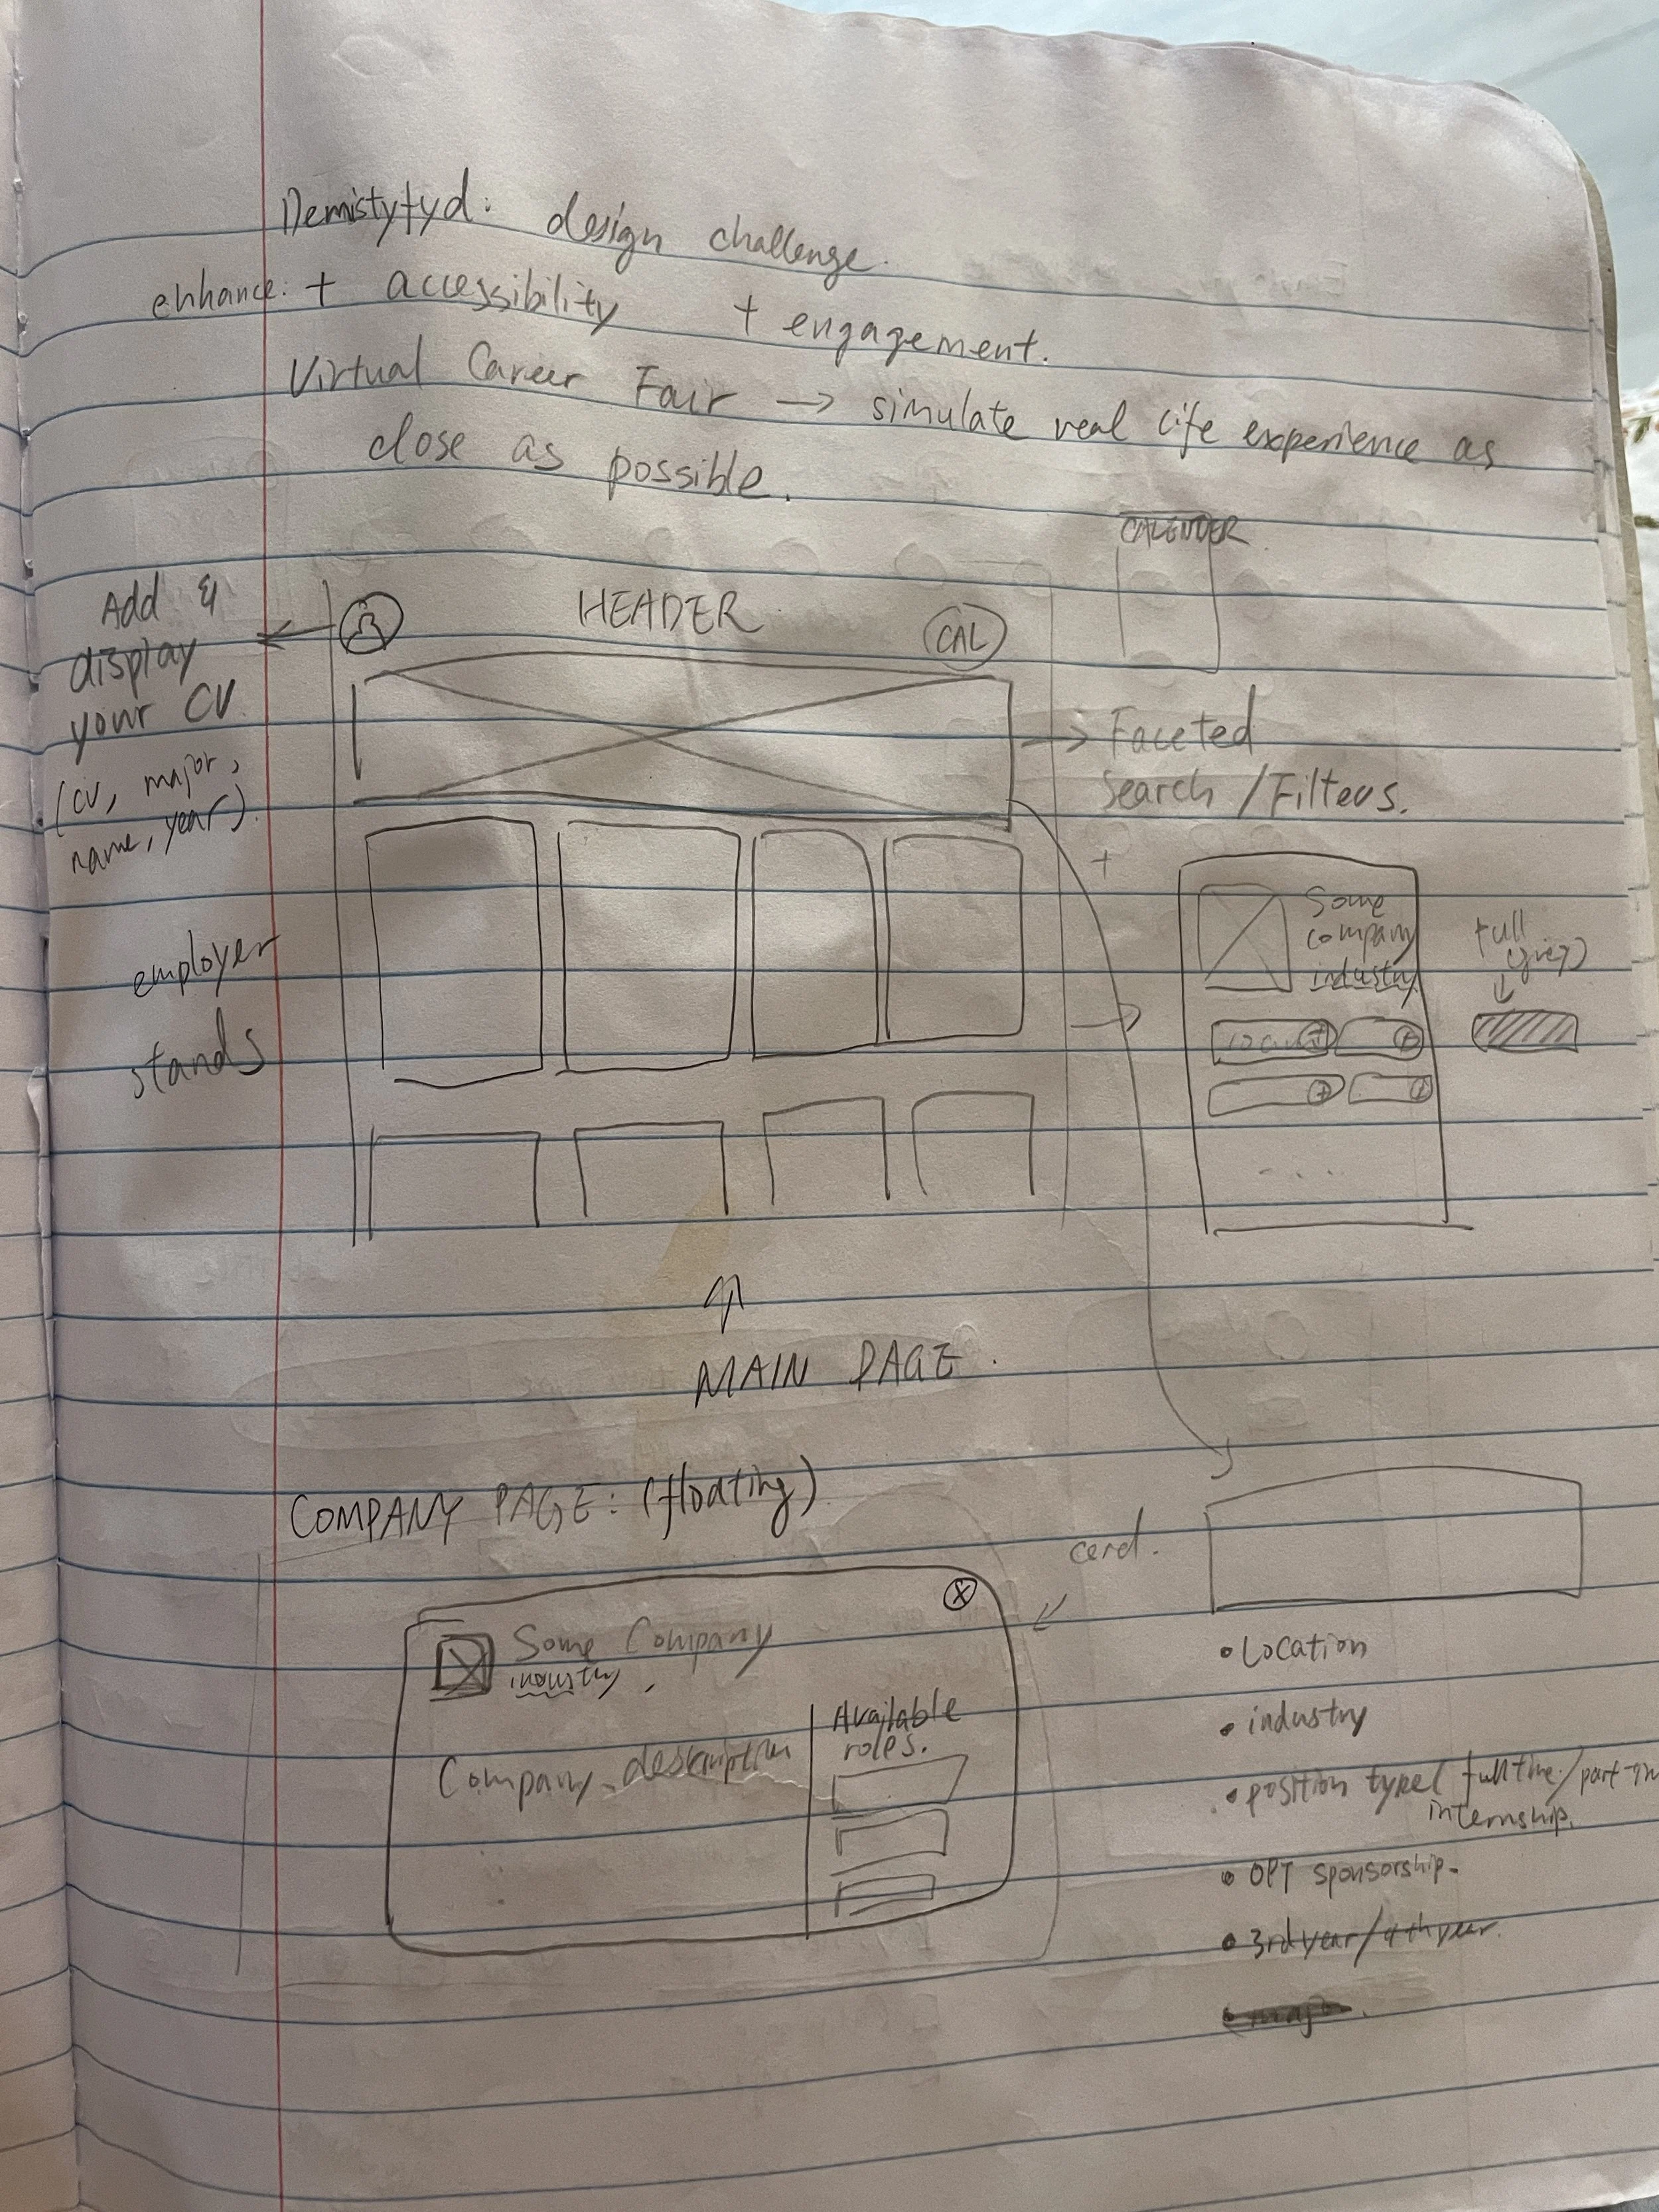 Demistyfyd: design challenge.
enhance: + accessibility + engagement.
Virtual Career Fair → simulate real life experience as
close as possible.
CALENDER
Add &
display
your CV
(cv, major,
name, year).
HEADER
CAL
→ Faceted
Search / Filters.
+
employer
stands
Some
company
industry
full
(grey)
MAIN PAGE.
COMPANY PAGE: (floating)
card.
Some Company
industry,
Company description
Available
roles.
• Location
• industry
• position type( full time / part-
internship.
• OPT sponsorship.
• 3rd year / 4th year.